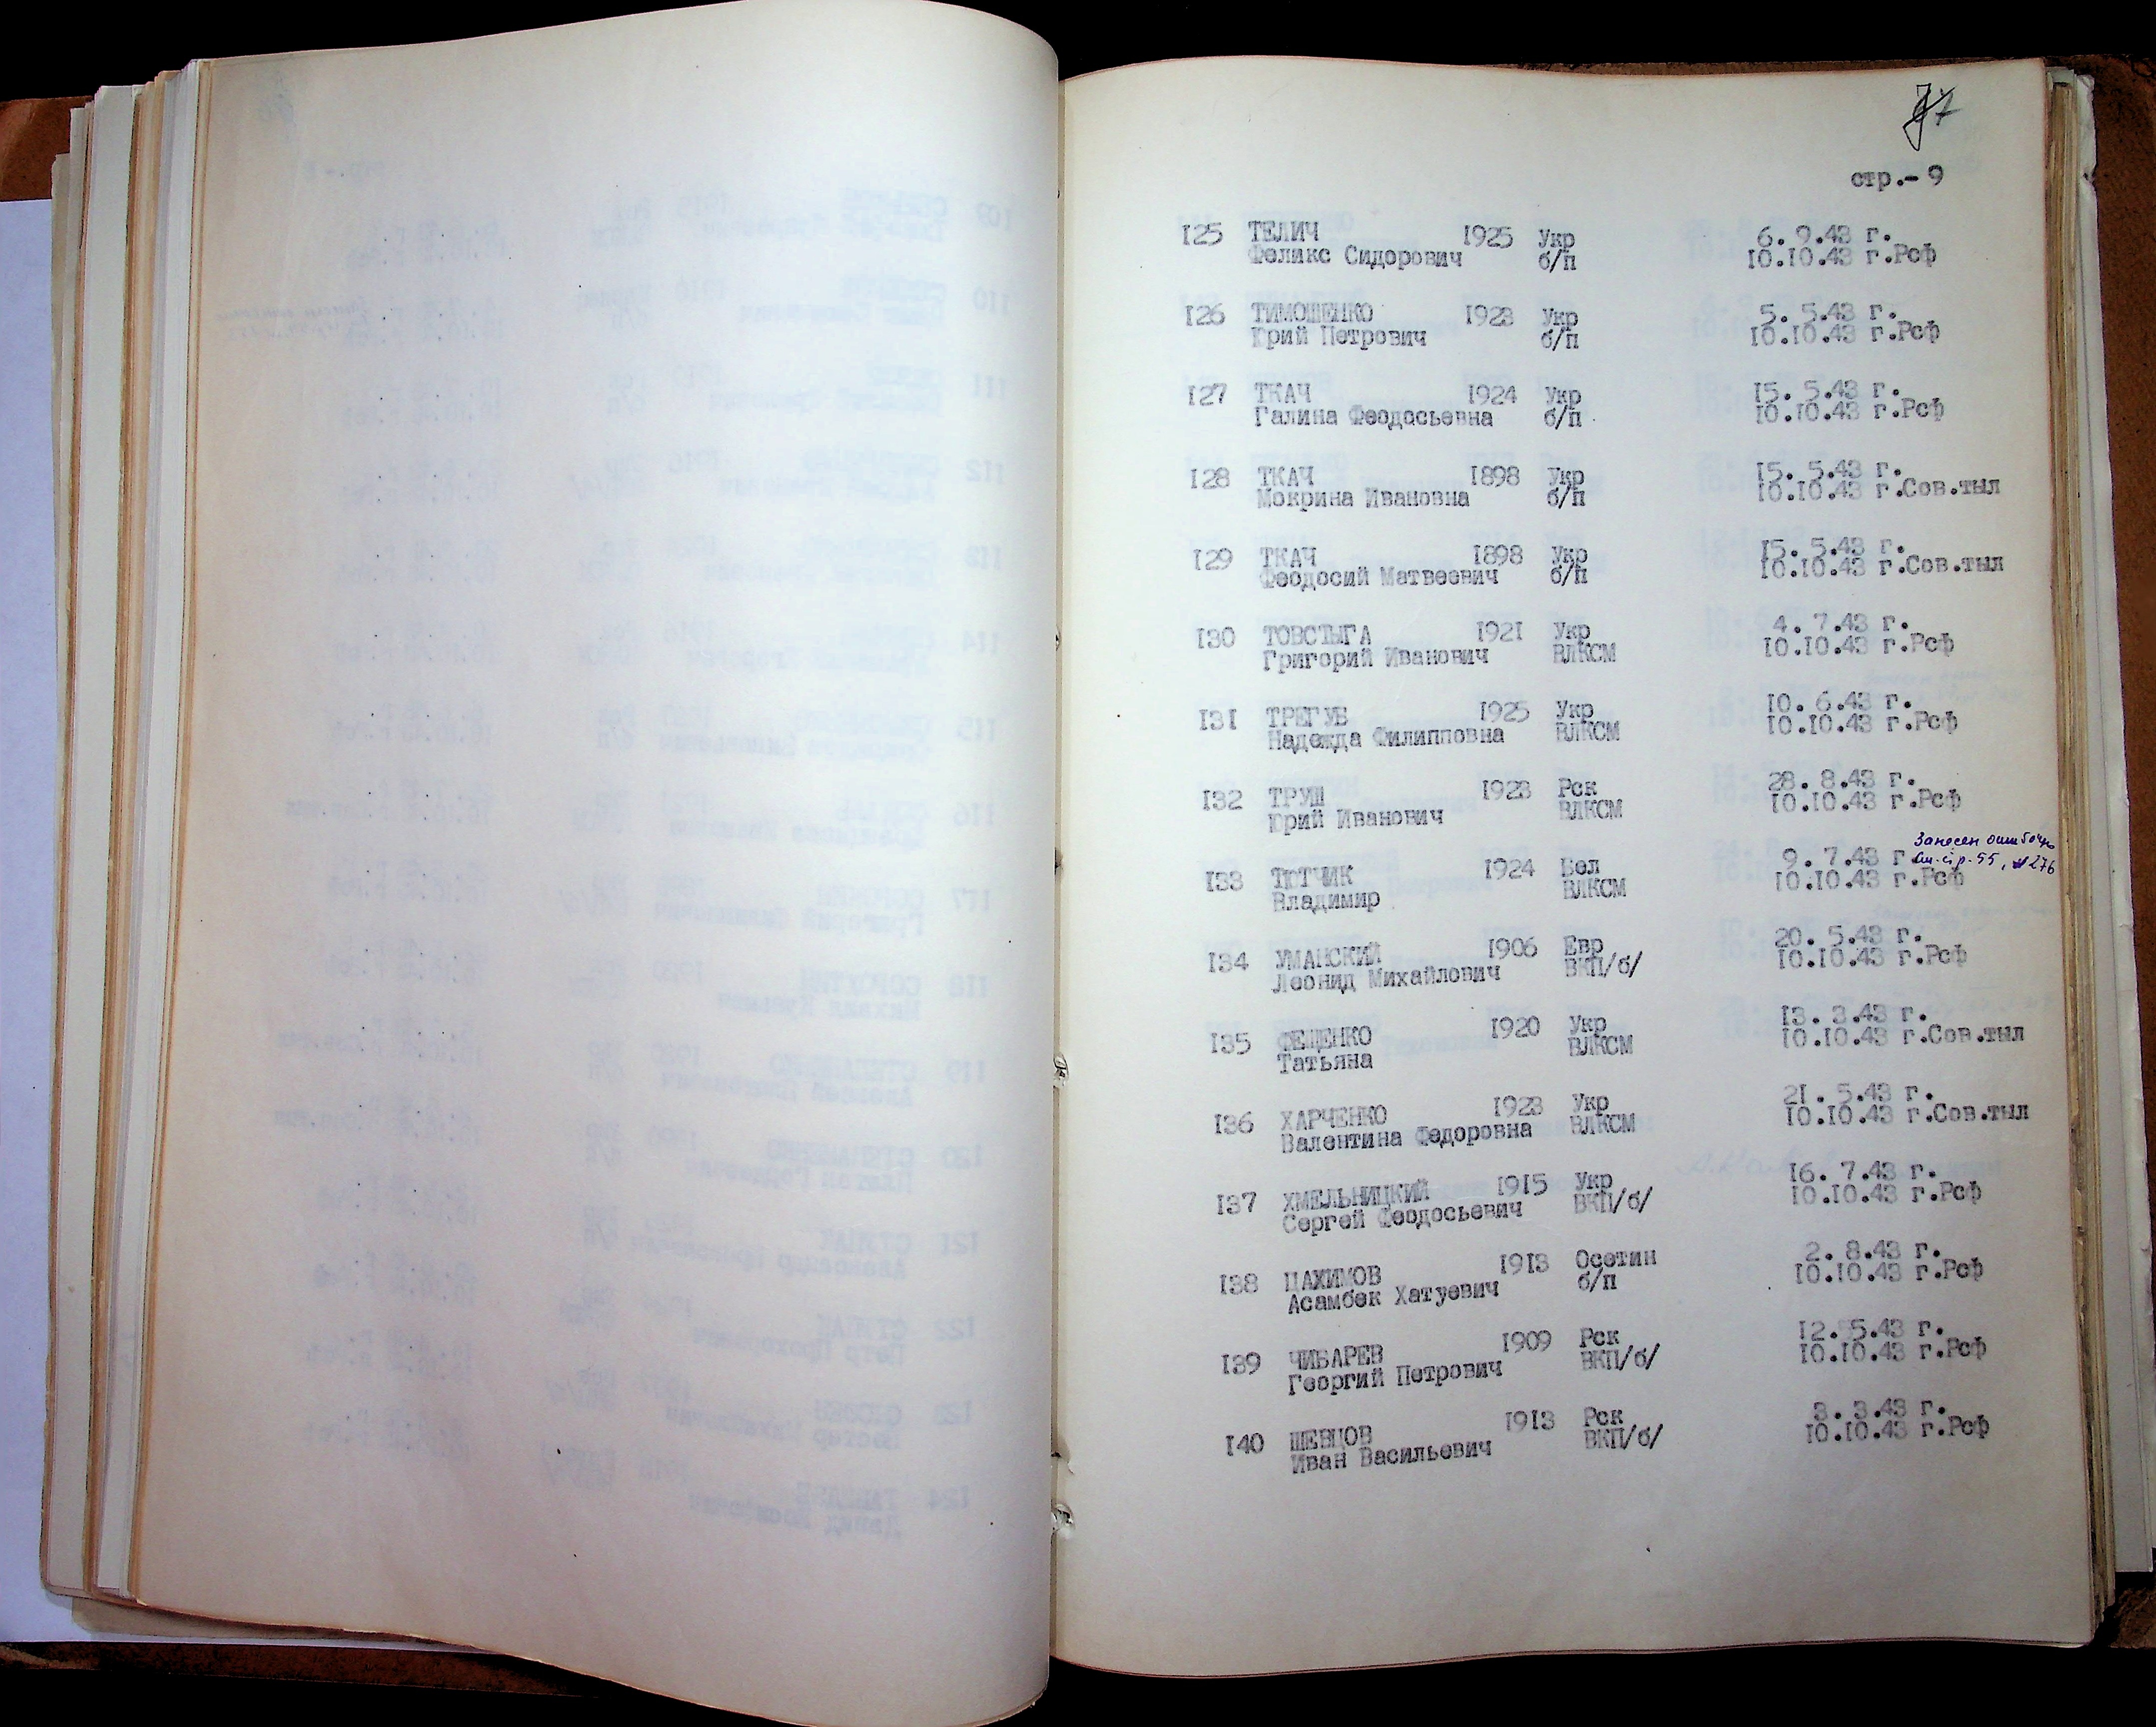 7
стр.- 9
125 ТЕЛИЧ 1925 Укр 6. 9.43 г.
Феликс Сидорович б/п 10.10.43 г.Рсф
126 ТИМОШЕНКО 1923 Укр 5. 5.43 г.
Юрий Петрович б/п 10.10.43 г.Рсф
127 ТКАЧ 1924 Укр 15. 5.43 г.
Галина Феодосьевна б/п 10.10.43 г.Рсф
128 ТКАЧ 1898 Укр 15. 5.43 г.
Мокрина Ивановна б/п 10.10.43 г.Сов.тыл
129 ТКАЧ 1898 Укр 15. 5.43 г.
Феодосий Матвеевич б/п 10.10.43 г.Сов.тыл
130 ТОВСТЫГА 1921 Укр 4. 7.43 г.
Григорий Иванович ВЛКСМ 10.10.43 г.Рсф
131 ТРЕГУБ 1925 Укр 10. 6.43 г.
Надежда Филипповна ВЛКСМ 10.10.43 г.Рсф
132 ТРУШ 1923 Рск 28. 8.43 г.
Юрий Иванович ВЛКСМ 10.10.43 г.Рсф
Занесен ошибочно
См. стр. 55, № 276
133 ТЮТЧИК 1924 Бел 9. 7.43 г.
Владимир ВЛКСМ 10.10.43 г.Рсф
134 УМАНСКИЙ 1906 Евр 20. 5.43 г.
Леонид Михайлович ВКП/б/ 10.10.43 г.Рсф
135 ФЕЩЕНКО 1920 Укр 13. 3.43 г.
Татьяна ВЛКСМ 10.10.43 г.Сов.тыл
136 ХАРЧЕНКО 1923 Укр 21. 5.43 г.
Валентина Федоровна ВЛКСМ 10.10.43 г.Сов.тыл
137 ХМЕЛЬНИЦКИЙ 1915 Укр 16. 7.43 г.
Сергей Феодосьевич ВКП/б/ 10.10.43 г.Рсф
138 ЦАХИМОВ 1913 Осетин 2. 8.43 г.
Асамбек Хатуевич б/п 10.10.43 г.Рсф
139 ЧИБАРЕВ 1909 Рск 12. 5.43 г.
Георгий Петрович ВКП/б/ 10.10.43 г.Рсф
140 ШЕВЦОВ 1913 Рск 3. 3.43 г.
Иван Васильевич ВКП/б/ 10.10.43 г.Рсф